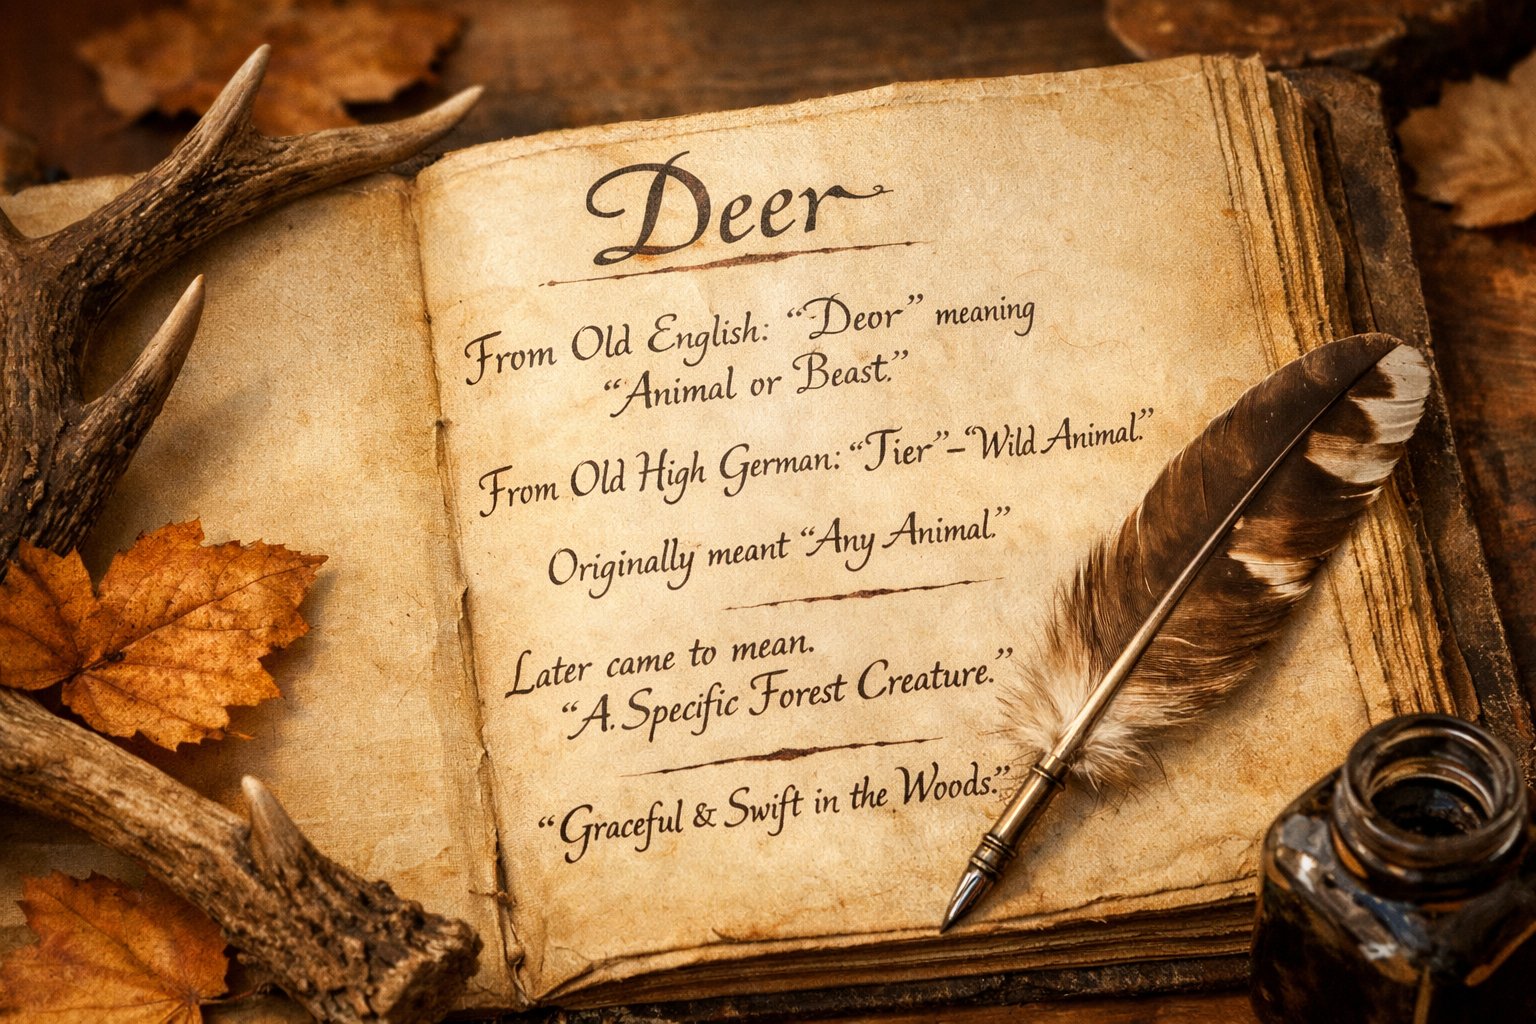 Deer
From Old English: “Deor” meaning
“Animal or Beast.”
From Old High German: “Tier”–“Wild Animal.”
Originally meant “Any Animal.”
Later came to mean.
“A. Specific Forest Creature.”
“Graceful & Swift in the Woods.”